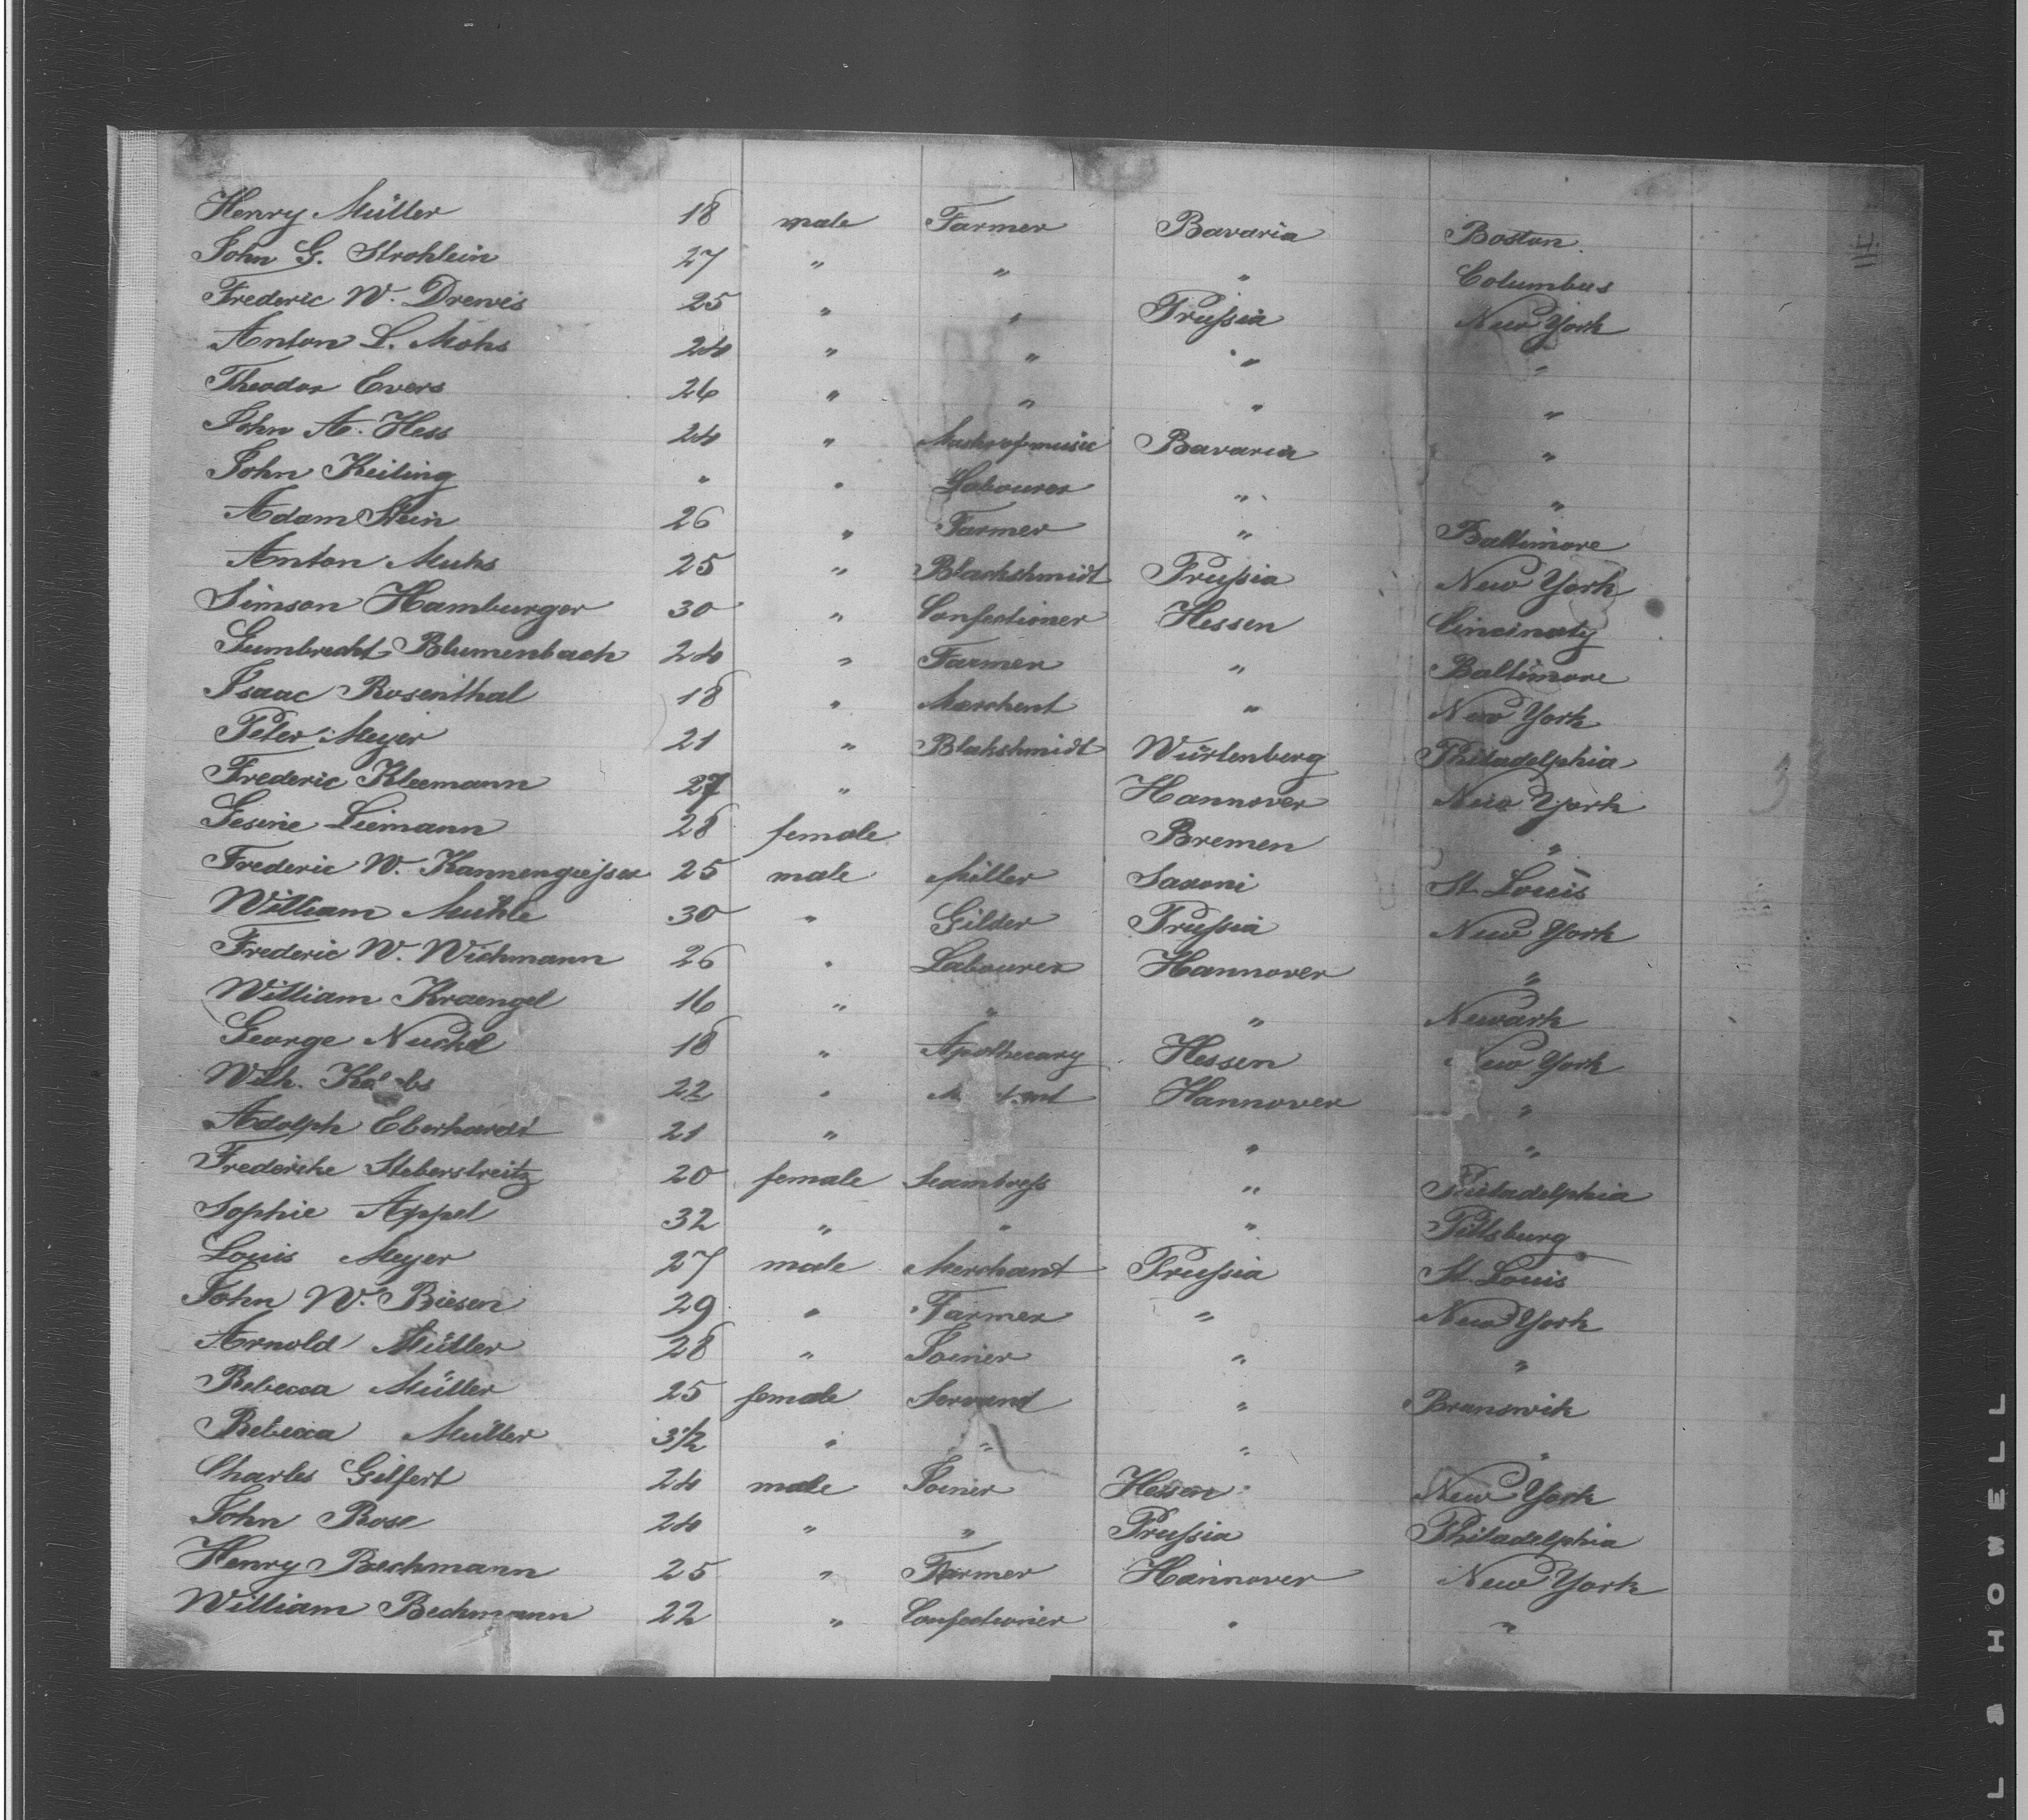 4.
Henry Müller 18 male Farmer Bavaria Boston.
John G. Strohlein 27 " " " Columbus
Frederic W. Drewis 25 " " Prussia New York
Anton L. Mohs 24 " " " "
Theodor Evers 26 " " " "
John A. Hess 24 " of music Bavaria "
John Keiling " " Labourer " "
Adam Stein 26 " Farmer " Baltimore
Anton Muhs 25 " Blackshmidt Prussia New York
Simson Hamburger 30 " Confectioner Hessen Cincinaty
Gumbrecht Blumenbach 24 " Farmer " Baltimore
Isaac Rosenthal 18 " Merchent " New York
Peter Meyer 21 " Blakshmidt Würtenberg Philadelphia
Frederic Kleemann 27 " Hannover New York
Gesine Leimann 28 female Bremen "
Frederic W. Kannengiesser 25 male Miller Saxoni St. Louis
William Muhle 30 " Gilder Prussia New York
Frederic W. Wichmann 26 " Labourer Hannover "
William Kraengel 16 " " " Newark
George Nuchel 18 " Apothecary Hessen New York
Wilh. 22 " Hannover "
Adolph Eberhardt 21 " " "
Frederike Steberstreitz 20 female Seamtress " Philadelphia
Sophie Appel 32 " " " Pittsburg
Louis Meyer 27 male Merchant Prussia St. Louis
John W. Biesen 29 " Farmer " New York
Arnold Müller 28 " Joiner " "
Rebecca Müller 25 female Servand " Brunswik
Rebecca Müller 3½ " " " "
Charles Gilfert 24 male Joiner Hessen New York
John Bose 24 " " Prussia Philadelphia
Henry Bechmann 25 " Farmer Hannover New York
William Bechmann 22 " Confectionier " "
3
L & HOWELL